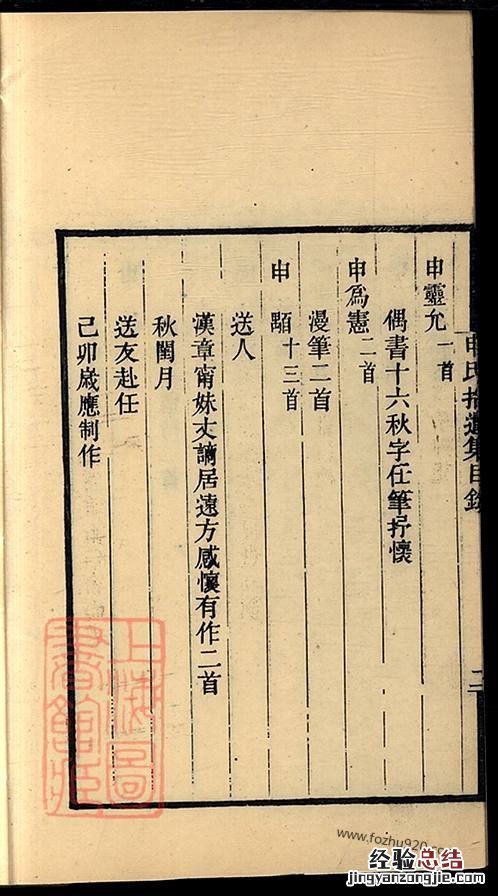 申氏拾遺集目錄
二
申靈允一首
偶書十六秋字任筆抒懷
申爲憲二首
漫筆二首
申顋十三首
送人
漢章甯妹丈謫居遠方感懷有作二首
秋閏月
送友赴任
己卯歲應制作
上海圖書館藏
www.fozhu920.com
经验总结
www.jianganzongjie.com